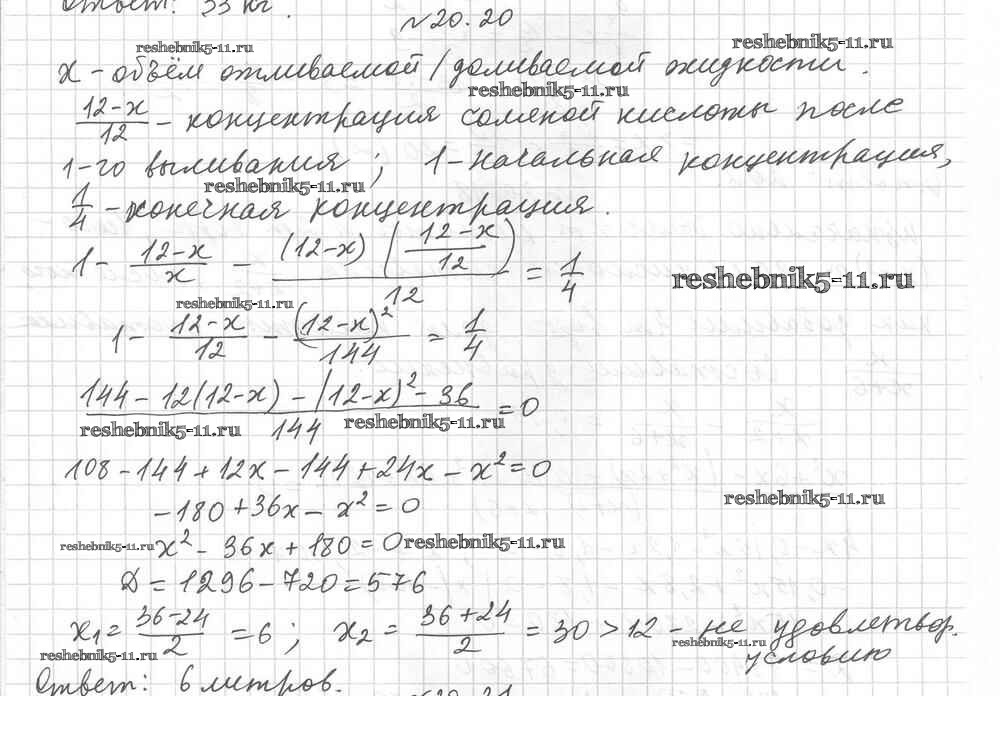 Ответ: 33 кг.
№20.20
reshebnik5-11.ru
reshebnik5-11.ru
x - объём отливаемой / доливаемой жидкости.
reshebnik5-11.ru
(12-x)/12 - концентрация соляной кислоты после
1-го выливания; 1 - начальная концентрация,
reshebnik5-11.ru
1/4 - конечная концентрация.
1 - (12-x)/x - ((12-x)((12-x)/12))/12 = 1/4
reshebnik5-11.ru
reshebnik5-11.ru
1 - (12-x)/12 - (12-x)²/144 = 1/4
(144 - 12(12-x) - (12-x)² - 36)/144 = 0
reshebnik5-11.ru
reshebnik5-11.ru
108 - 144 + 12x - 144 + 24x - x² = 0
reshebnik5-11.ru
-180 + 36x - x² = 0
reshebnik5-11.ru
x² - 36x + 180 = 0
reshebnik5-11.ru
D = 1296 - 720 = 576
x₁ = (36-24)/2 = 6; x₂ = (36+24)/2 = 30 > 12 - не удовлетвор.
reshebnik5-11.ru
reshebnik5-11.ru
условию
Ответ: 6 литров.